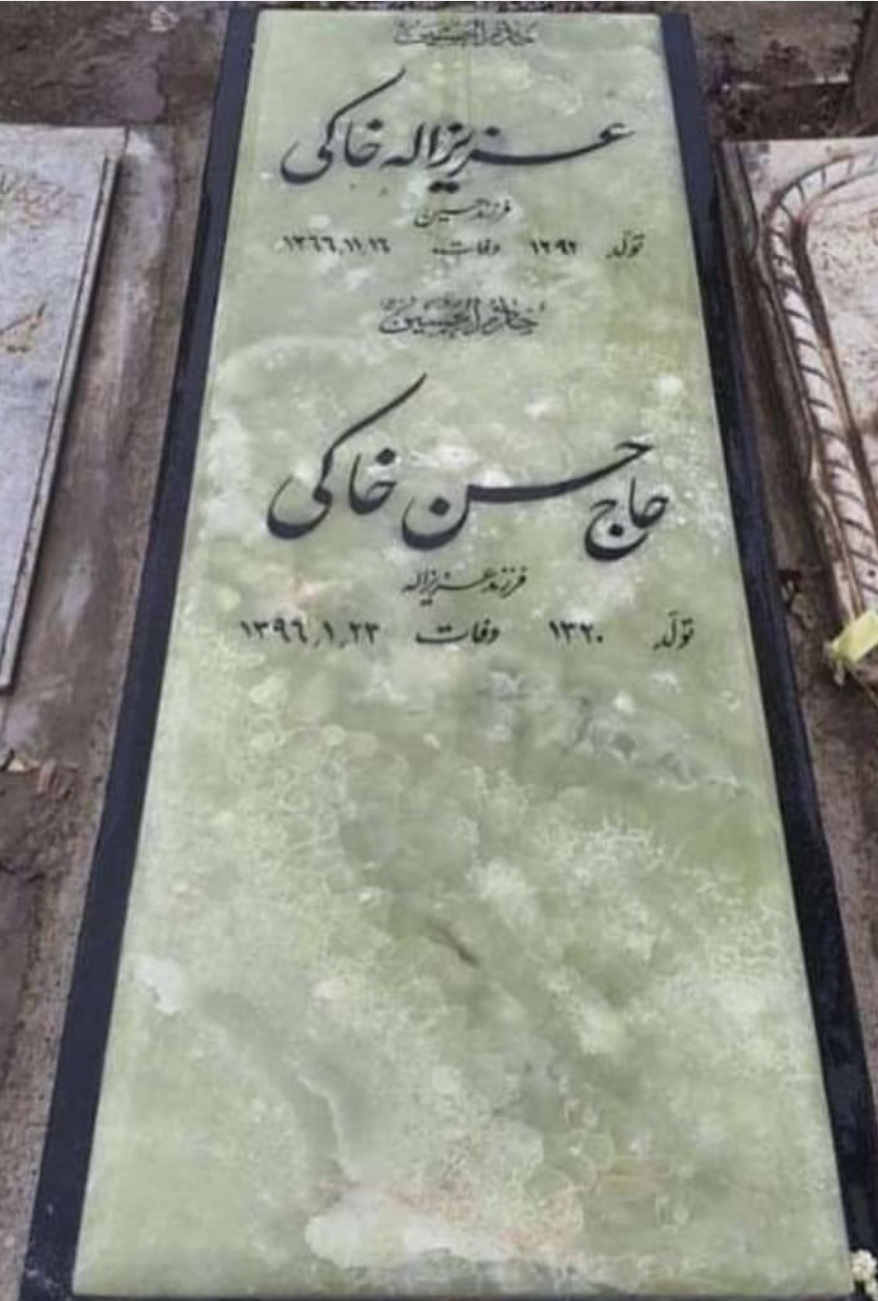 خادم الحسین
عزیزاله خاکی
فرزند حسین
تولّد ۱۲۹۲ وفات ۱۳۶۶,۱۱,۱٤
خادم الحسین
حاج حسن خاکی
فرزند عزیزاله
تولّد ۱۳۲۰ وفات ۱۳۹۶,۱,۲۳